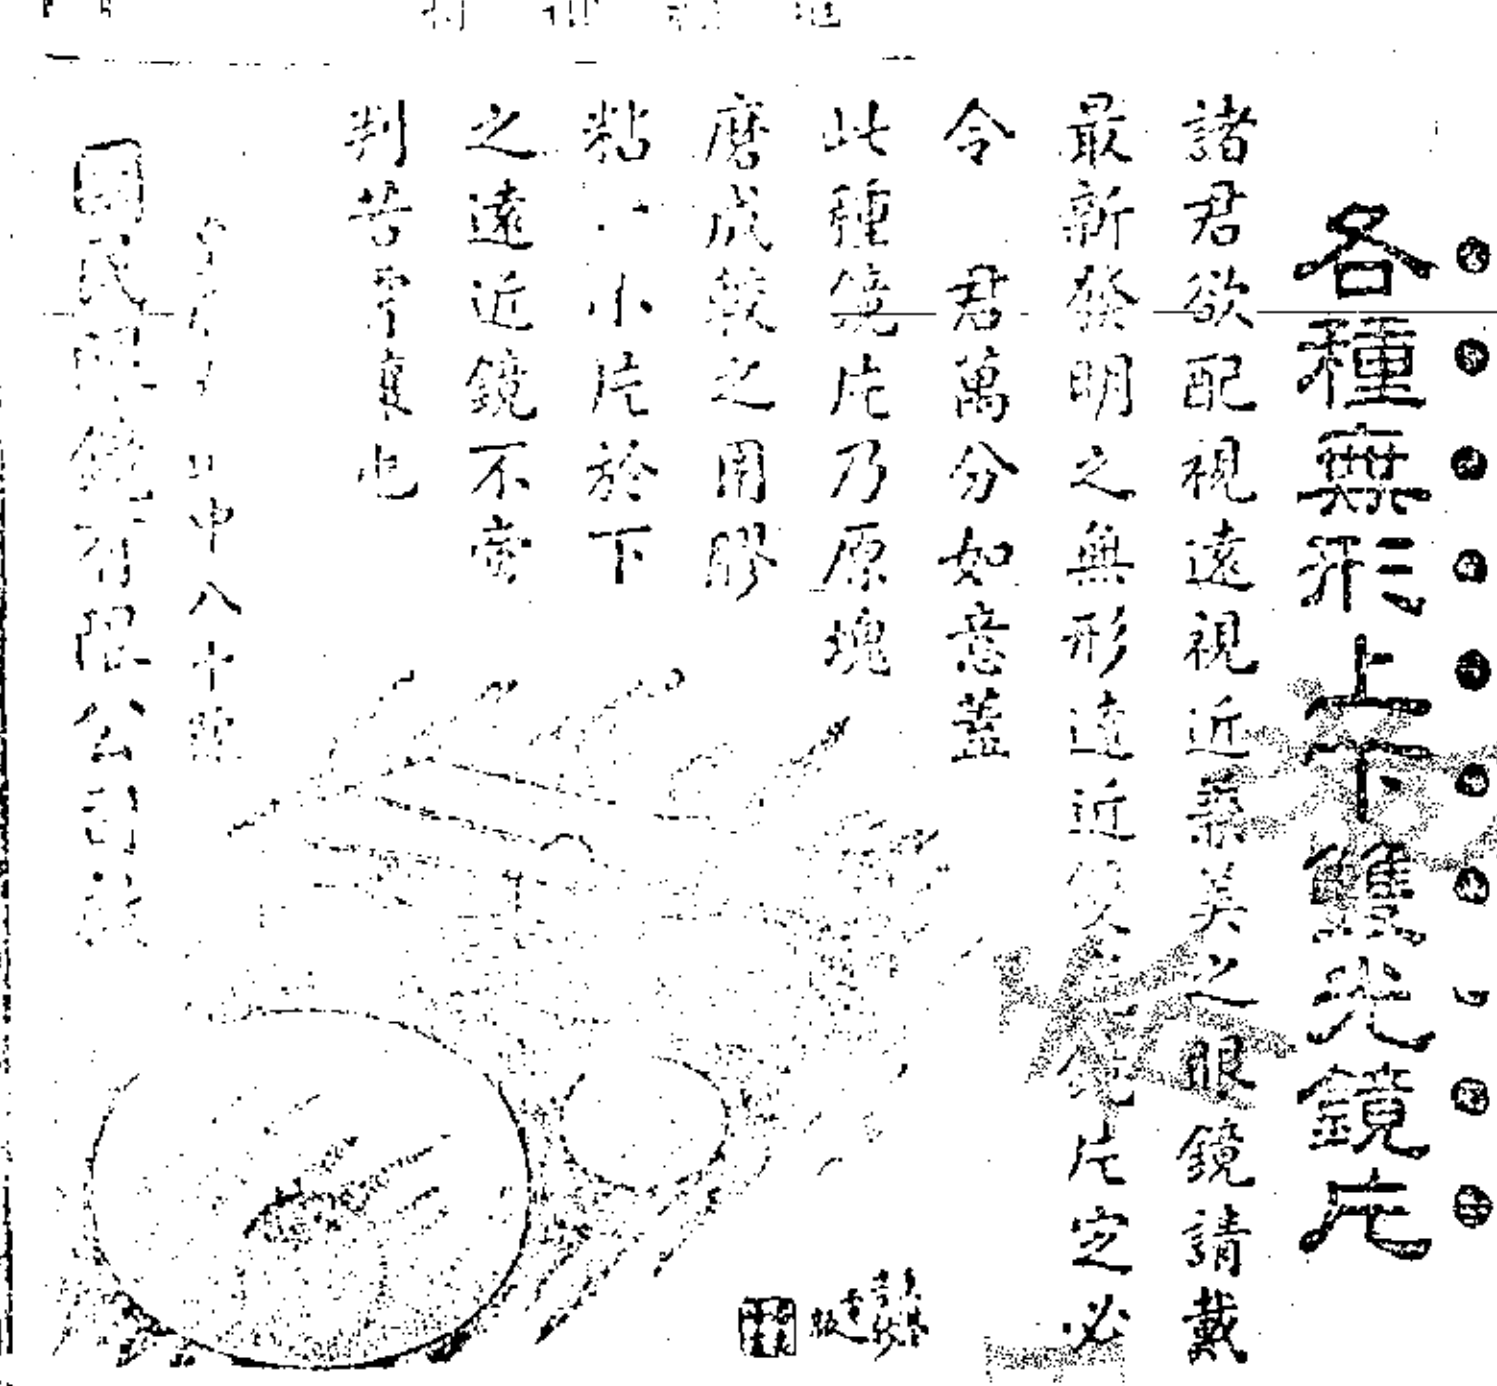 各種無形上下雙光鏡片
諸君欲配視遠視近兼美之眼鏡請戴
最新發明之無形遠近雙光鏡片定必
令 君萬分如意蓋
此種鏡片乃原塊
磨成較之用膠
粘小片於下
之遠近鏡不啻
判若霄壤也
中八十號
國民眼鏡有限公司啟